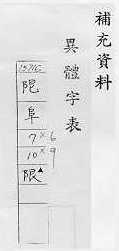 補充資料
異體字表
阜
7×6
10×9
限▲